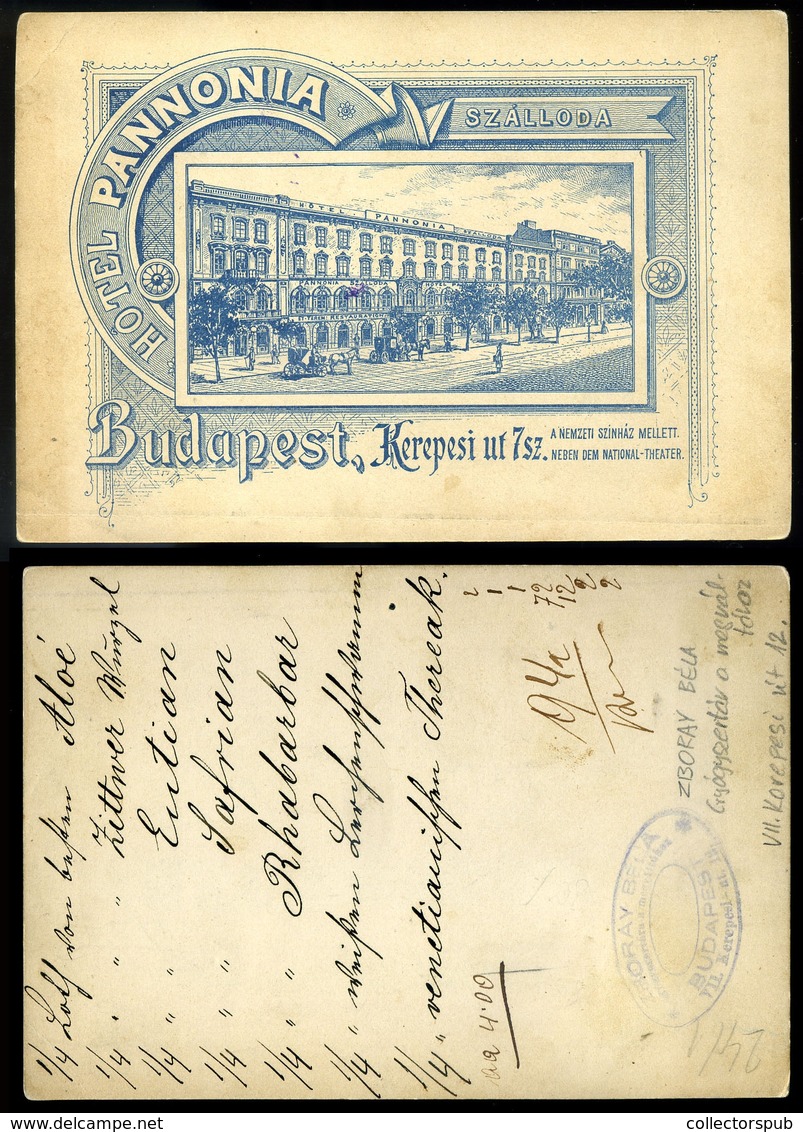 HOTEL PANNONIA
SZÁLLODA
HÔTEL PANNONIA
PANNONIA
Budapest, Kerepesi ut 7sz.
A NEMZETI SZÍNHÁZ MELLETT.
NEBEN DEM NATIONAL-THEATER.
1/4 Loth von besten Aloé
1/4 " " Zittwer Wurzel
1/4 " " Entian
1/4 " " Safrian
1/4 " " Rhabarbar
1/4 " weißen Lerchenschwamm
1/4 " venetianischen Thereak.
aa 4·00
2
1
1
72
12
2
2
ZBORAY BÉLA
Gyógyszertár a megvál-
tóhoz
VII. Kerepesi út 12.
ZBORAY BÉLA
BUDAPEST
VII. Kerepesi-ut
collectorspub